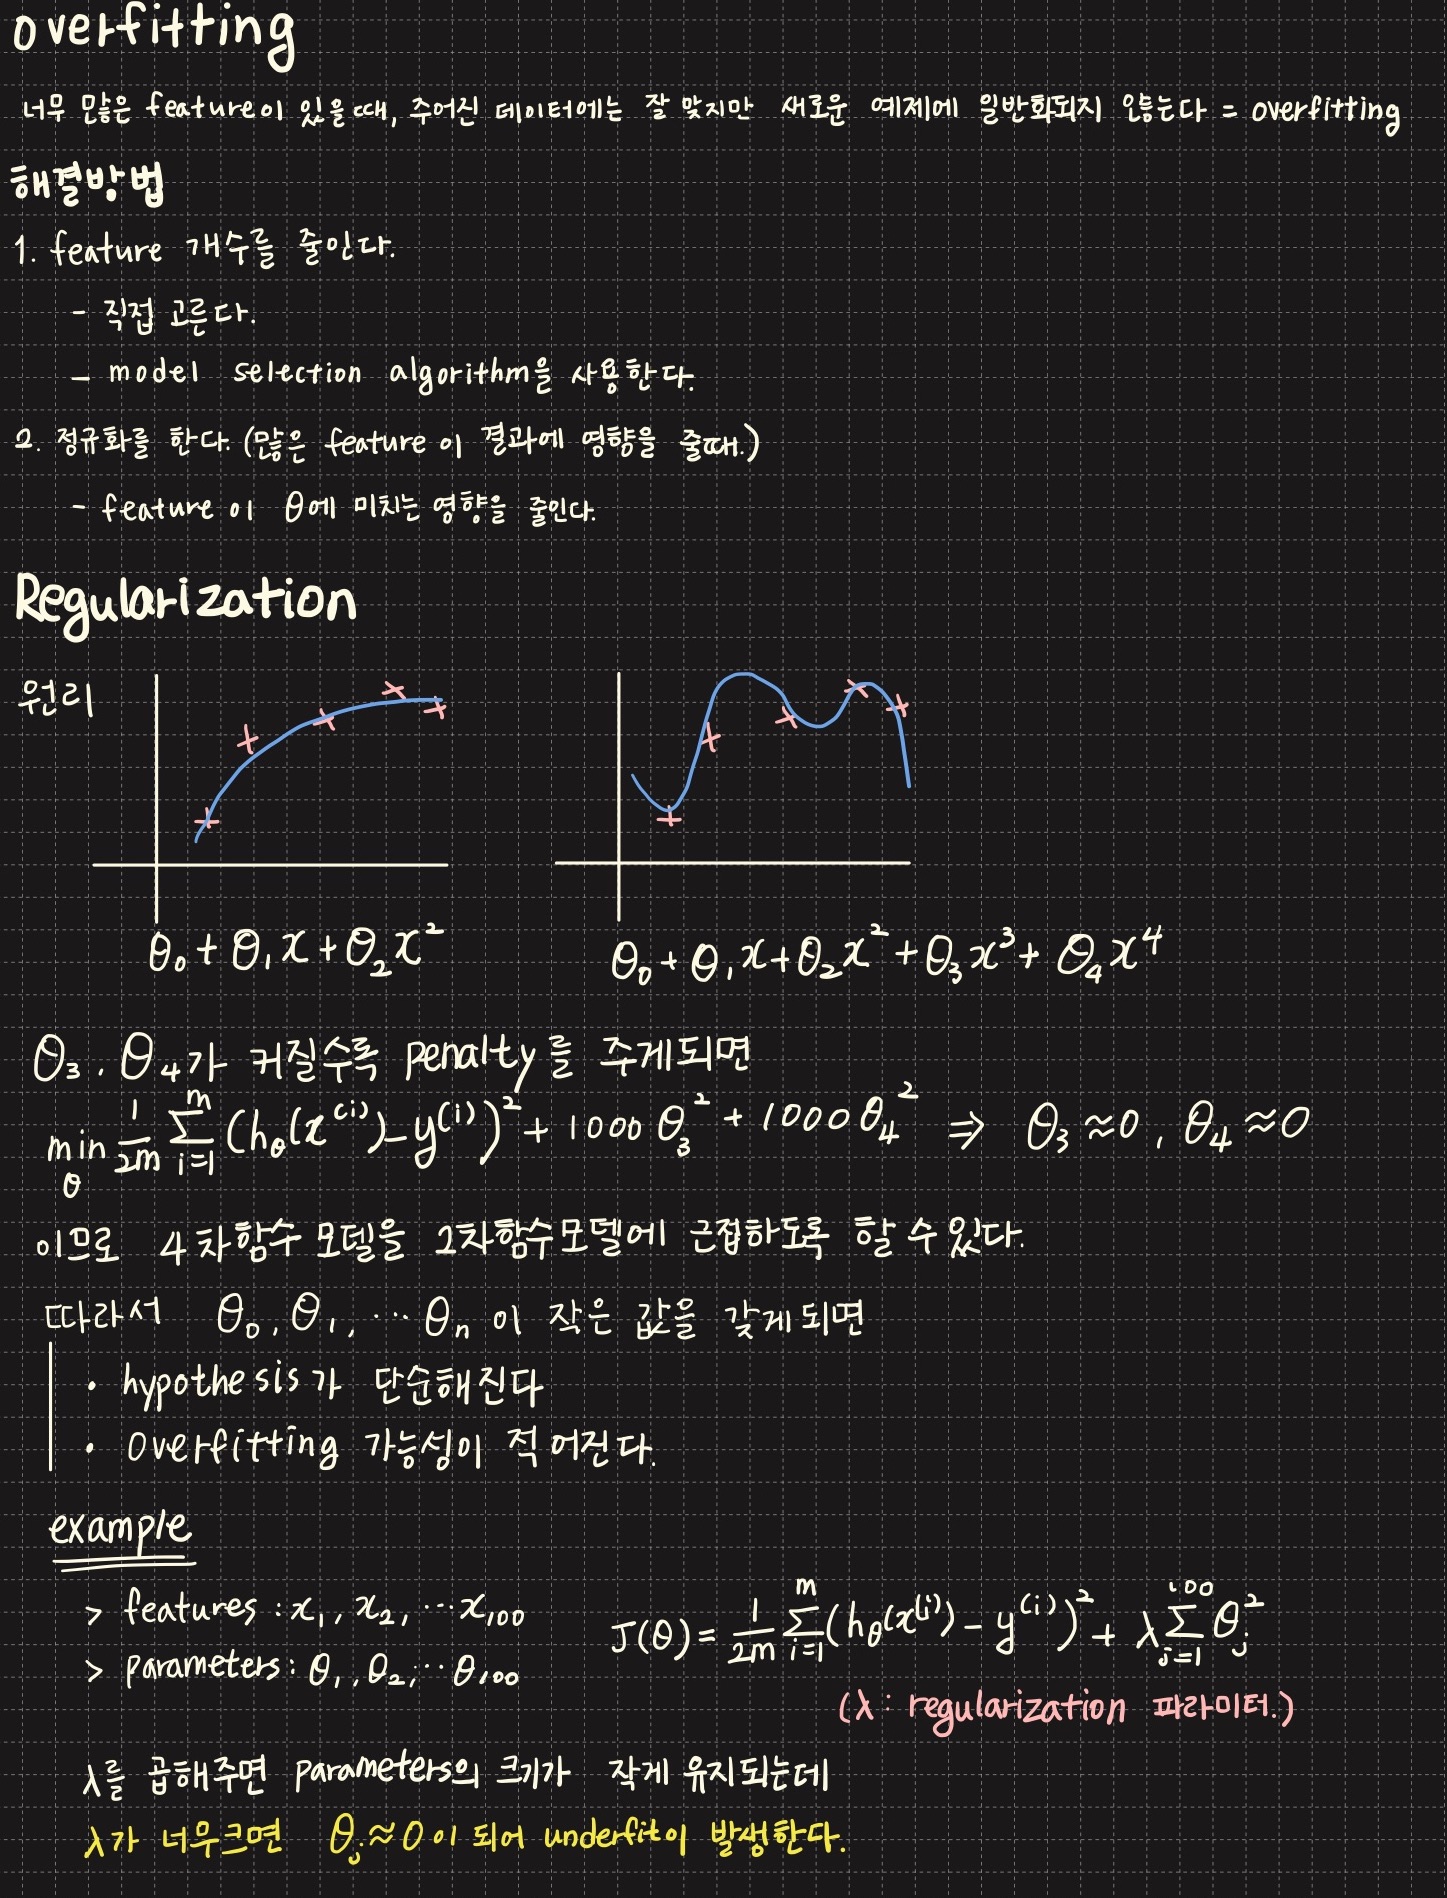 overfitting
너무 많은 feature이 있을때, 주어진 데이터에는 잘 맞지만 새로운 예제에 일반화되지 않는다 = overfitting
해결방법
1. feature 개수를 줄인다.
- 직접 고른다.
- model selection algorithm을 사용한다.
2. 정규화를 한다. (많은 feature이 결과에 영향을 줄때.)
- feature이 θ에 미치는 영향을 줄인다.
Regularization
원리
θ₀ + θ₁x + θ₂x²
θ₀ + θ₁x + θ₂x² + θ₃x³ + θ₄x⁴
θ₃, θ₄가 커질수록 penalty를 주게되면
min_θ 1/2m Σ_{i=1}^{m} (h_θ(x⁽ⁱ⁾) - y⁽ⁱ⁾)² + 1000 θ₃² + 1000 θ₄² ⇒ θ₃ ≈ 0, θ₄ ≈ 0
이므로 4차함수 모델을 2차함수모델에 근접하도록 할 수 있다.
따라서 θ₀, θ₁, ··· θₙ 이 작은 값을 갖게되면
• hypothesis가 단순해진다
• Overfitting 가능성이 적어진다.
example
> features : x₁, x₂, ··· x₁₀₀
> parameters : θ₁, θ₂, ·· θ₁₀₀
J(θ) = 1/2m Σ_{i=1}^{m} (h_θ(x⁽ⁱ⁾) - y⁽ⁱ⁾)² + λ Σ_{j=1}^{100} θ_j²
(λ : regularization 파라미터.)
λ를 곱해주면 parameters의 크기가 작게 유지되는데
λ가 너무크면 θ_j ≈ 0 이 되어 underfit이 발생한다.